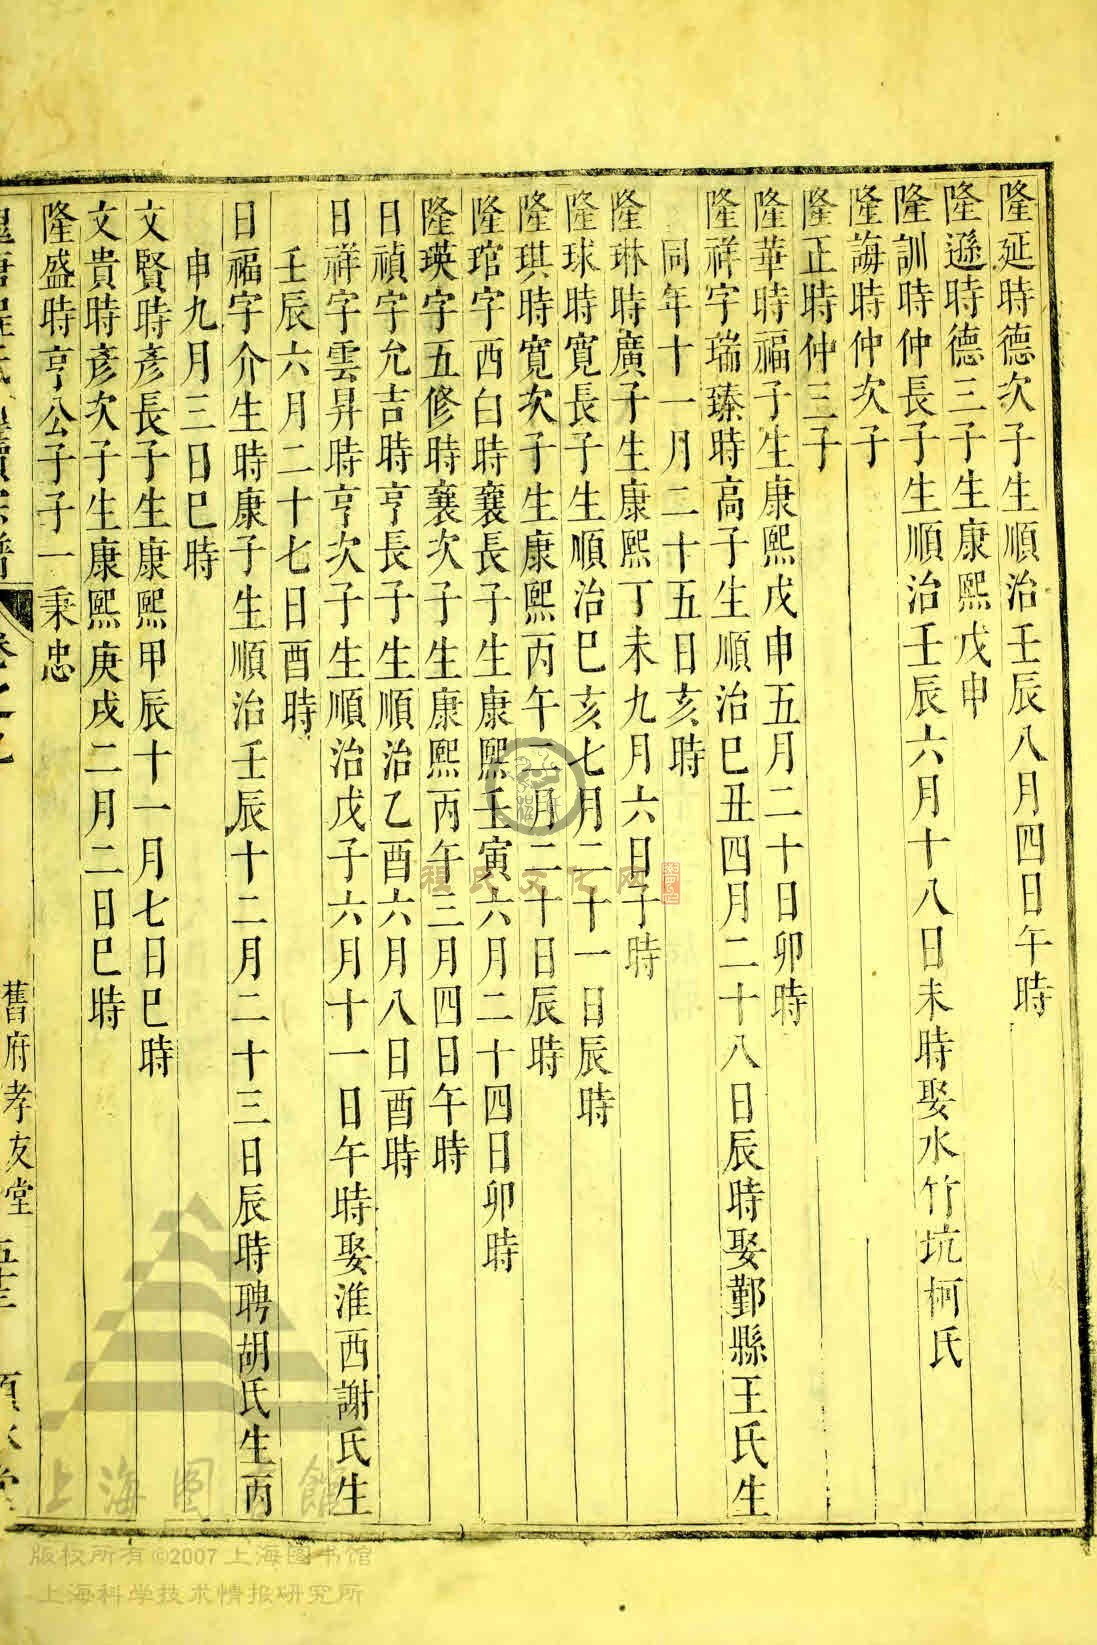 隆延時德次子生順治壬辰八月四日午時
隆遜時德三子生康熙戊申
隆訓時仲長子生順治壬辰六月十八日未時娶水竹坑柯氏
隆誨時仲次子
隆正時仲三子
隆華時福子生康熙戊申五月二十日卯時
隆祥字瑞臻時高子生順治巳丑四月二十八日辰時娶鄞縣王氏生
同年十一月二十五日亥時
隆琳時廣子生康熙丁未九月六日子時
隆球時寬長子生順治巳亥七月二十一日辰時
隆琪時寬次子生康熙丙午二月二十日辰時
隆琯字西白時襄長子生康熙壬寅六月二十四日卯時
隆瑛字五修時襄次子生康熙丙午三月四日午時
日禎字允吉時亨長子生順治乙酉六月八日酉時
日祥字雲昇時亨次子生順治戊子六月十一日午時娶淮西謝氏生
壬辰六月二十七日酉時
日福字介生時康子生順治壬辰十二月二十三日辰時聘胡氏生丙
申九月三日巳時
文賢時彥長子生康熙甲辰十一月七日巳時
文貴時彥次子生康熙庚戌二月二日巳時
隆盛時亨公子子一秉忠
舊府孝友堂
程氏文化网
上海图书馆
版权所有©2007上海图书馆
上海科学技术情报研究所